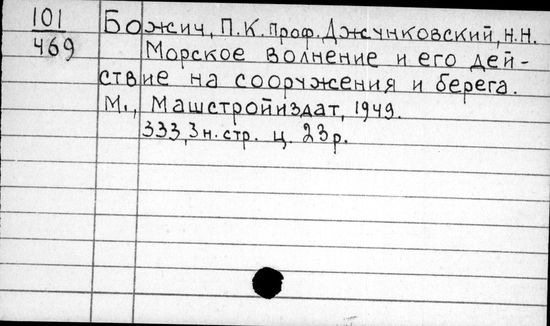 101
469
Божич, П.К. проф. Джунковский, Н.Н.
Морское волнение и его дей-
ствие на сооружения и берега.
М., Машстройиздат, 1949.
333,3 н. стр. ц. 23 р.